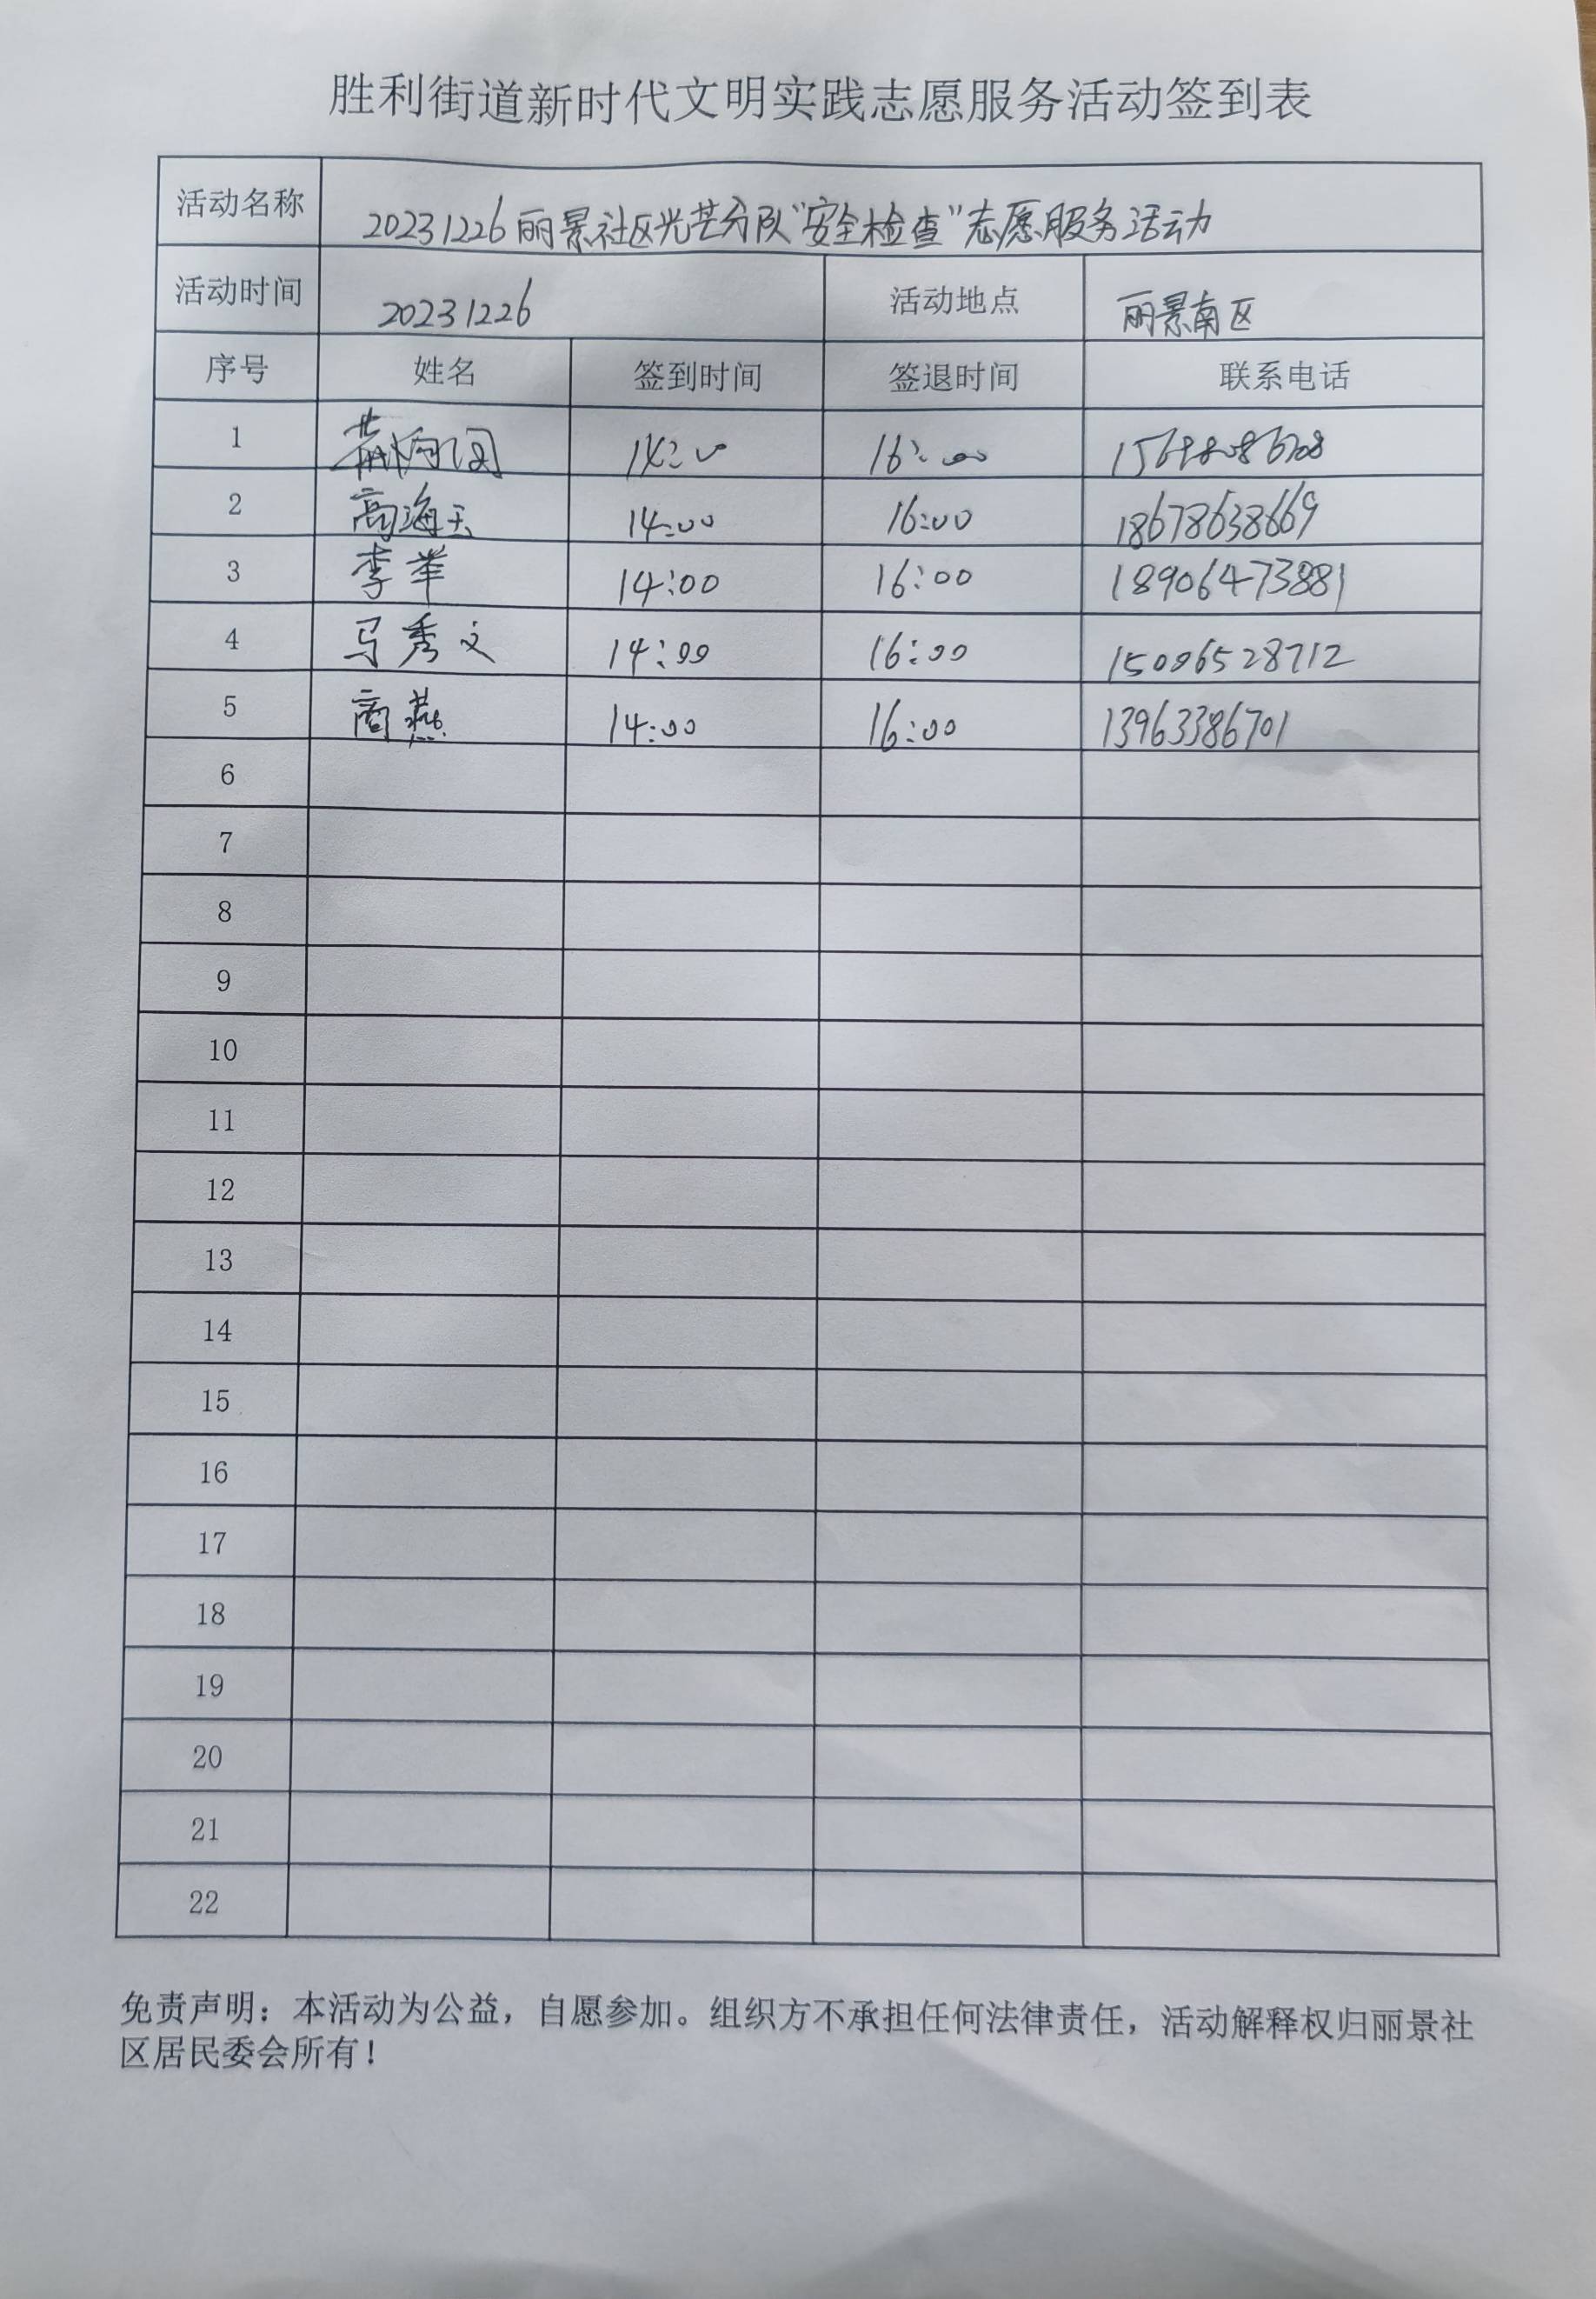 胜利街道新时代文明实践志愿服务活动签到表
活动名称 20231226丽景社区光芒分队“安全检查”志愿服务活动
活动时间 20231226 活动地点 丽景南区
序号 姓名 签到时间 签退时间 联系电话
1 16:00
2 高海玉 14:00 16:00 18678638669
3 李举 14:00 16:00 18906473881
4 马秀文 14:00 16:00 15006528712
5 商燕 14:00 16:00 13963386701
6
7
8
9
10
11
12
13
14
15
16
17
18
19
20
21
22
免责声明：本活动为公益，自愿参加。组织方不承担任何法律责任，活动解释权归丽景社
区居民委会所有！